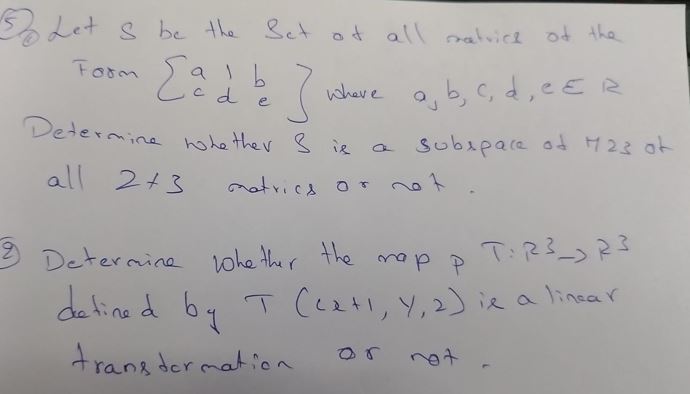 5) Let S be the Set of all matrics of the
Form [a 1 b
c d e] where a, b, c, d, e ∈ R
Determine whether S is a subspace of M23 of
all 2×3 matrics or not.
2) Determine whether the map p T: R3 → R3
defined by T (x+1, y, z) is a linear
transformation or not.